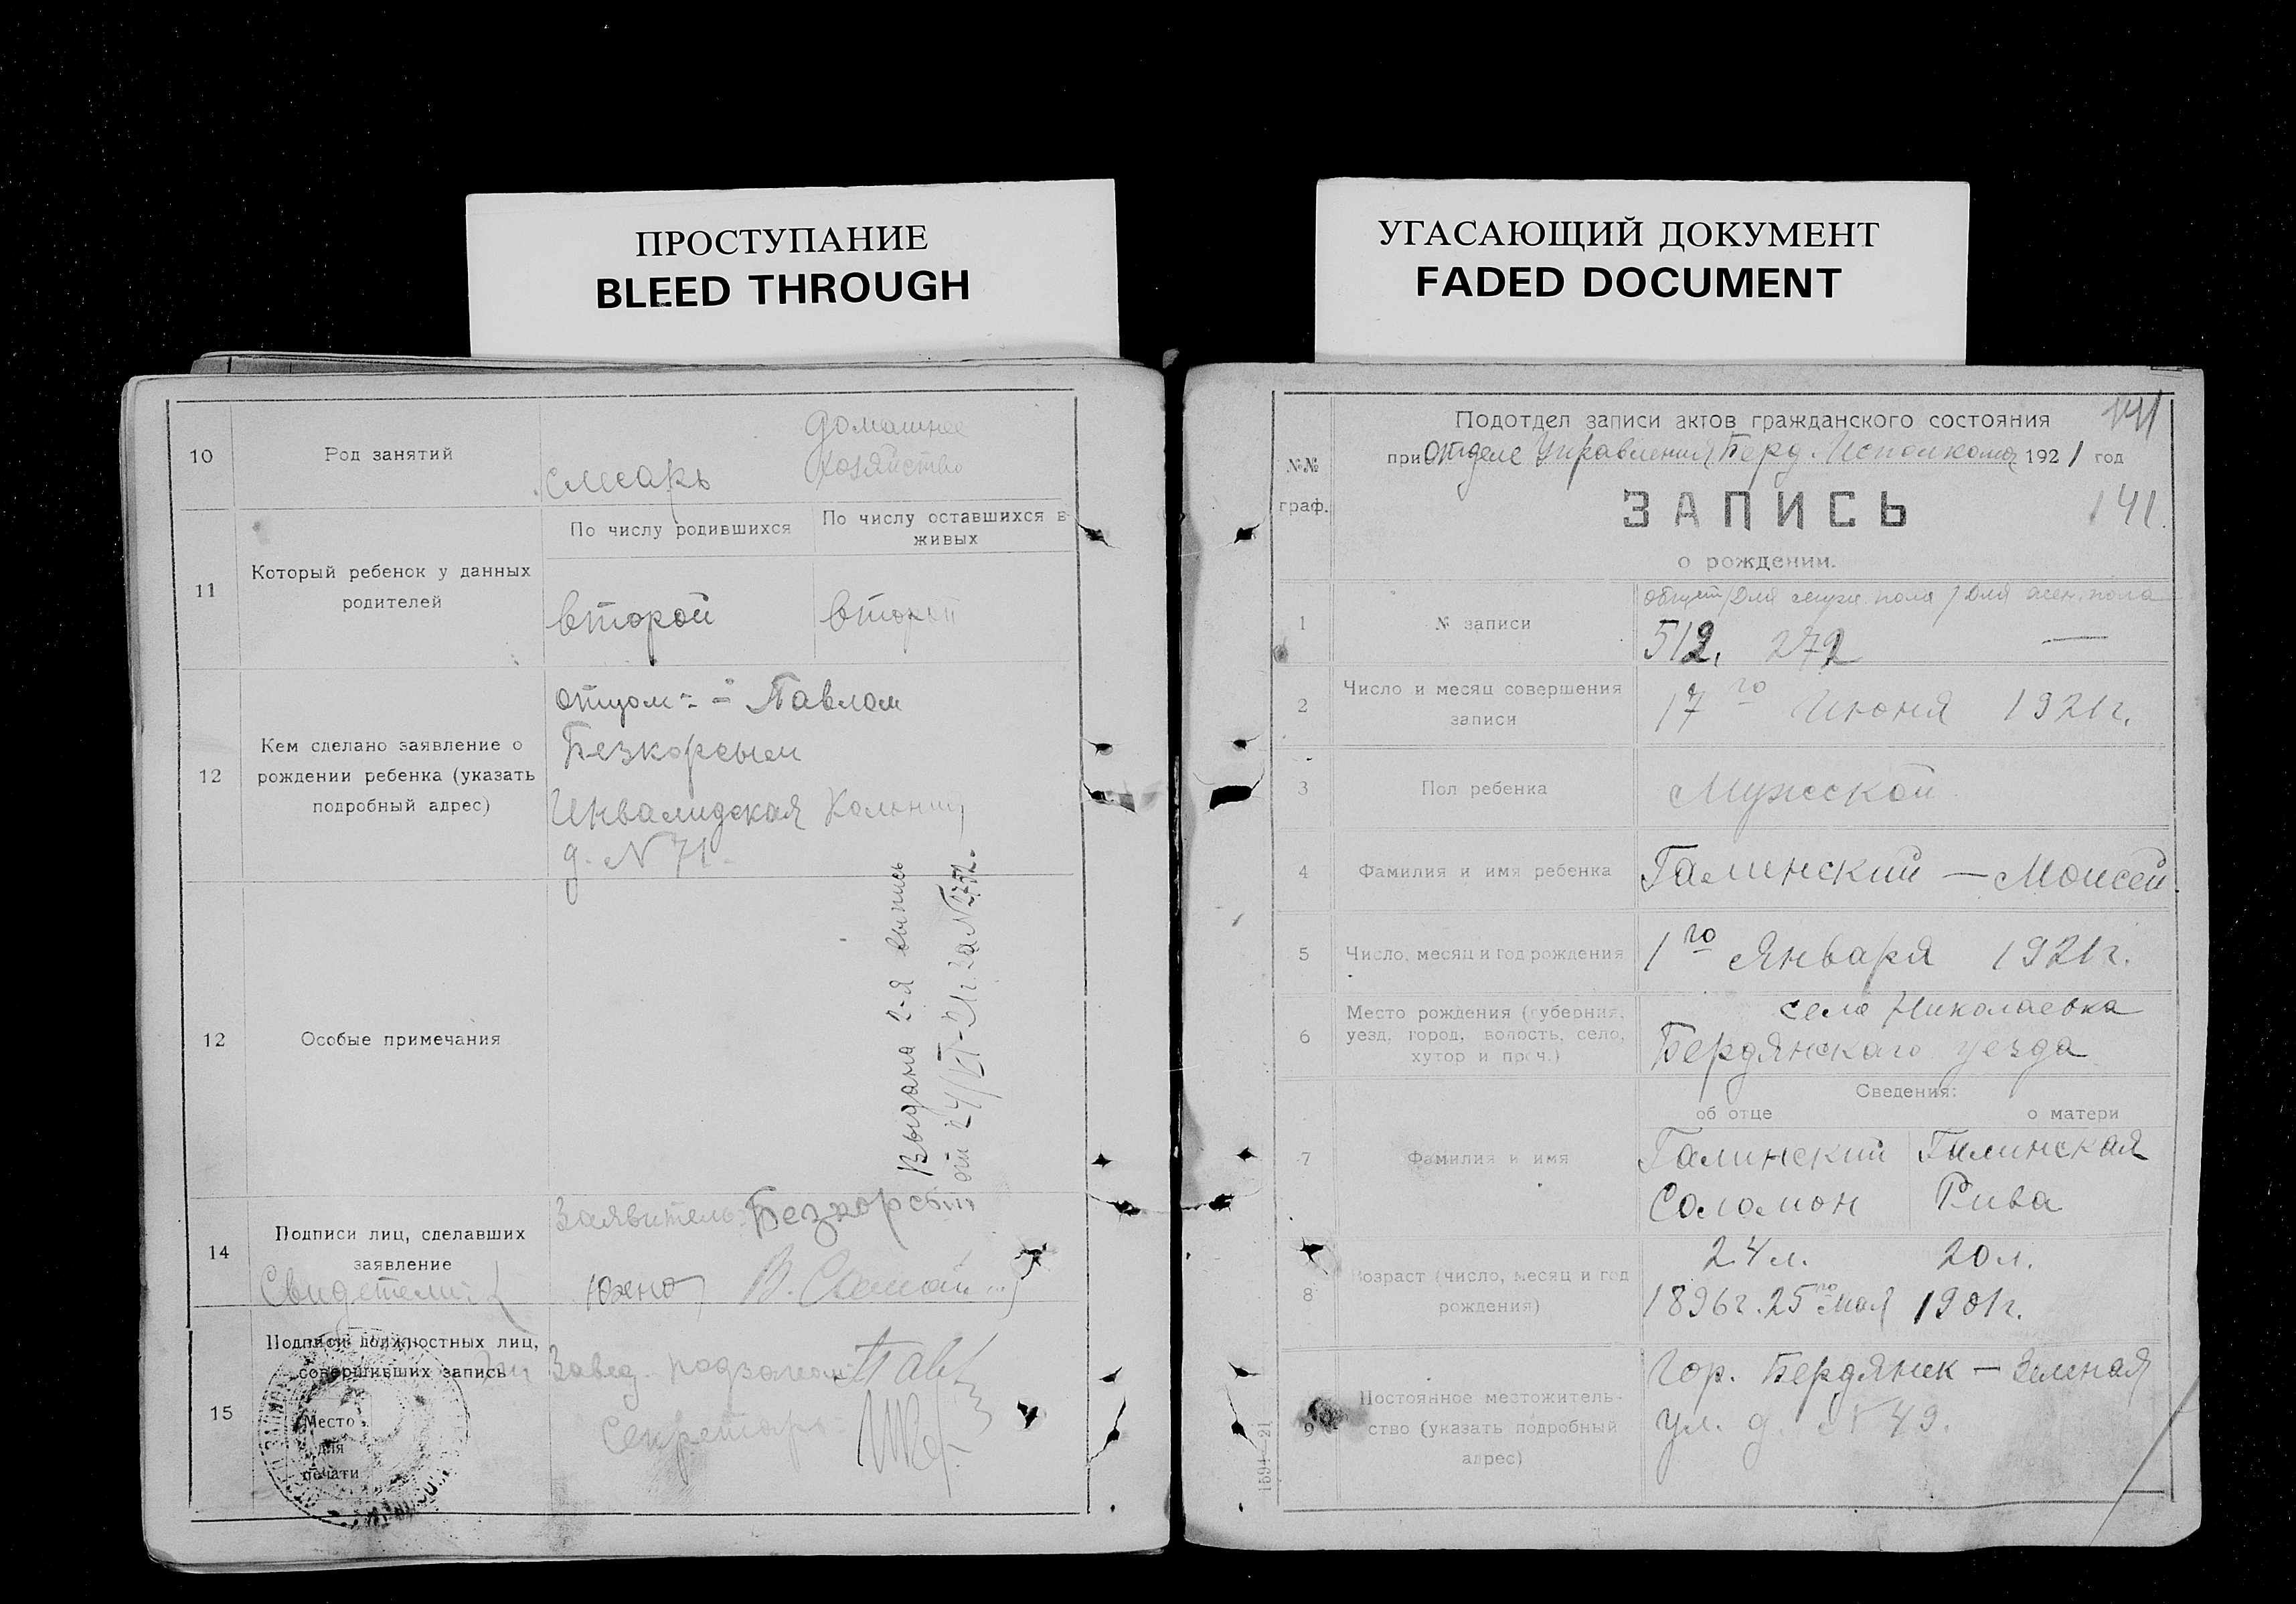 ПРОСТУПАНИЕ
BLEED THROUGH
УГАСАЮЩИЙ ДОКУМЕНТ
FADED DOCUMENT
10
Род занятий
слесарь
домашнее
хозяйство
11
Который ребенок у данных
родителей
По числу родившихся
По числу оставшихся в
живых
второй
второй
12
Кем сделано заявление о
рождении ребенка (указать
подробный адрес)
отцом Павлом
Безкорсым
Инвалидская
д. N 71
12
Особые примечания
Выдана 2-я выпись
от 24/VI-21г за N
14
Подписи лиц, сделавших
заявление
Свидетели:
Заявитель:
15
Подписи должностных лиц,
совершивших запись
Место
для
печати
Завед.
Секретарь
№№
граф.
Подотдел записи актов гражданского состояния
при Отделе Управления Берд. Исполкома 1921 год
141
ЗАПИСЬ
141.
о рождении.
1
№ записи
общий / Для мужс. пола / Для жен. пола
512. 272 —
2
Число и месяц совершения
записи
17го Июня 1921г.
3
Пол ребенка
Мужеской
4
Фамилия и имя ребенка
Галинский — Моисей
5
Число, месяц и год рождения
1го Января 1921г.
6
Место рождения (губерния,
уезд, город, волость, село,
хутор и проч.)
село Николаевка
Бердянскаго уезда
Сведения:
об отце
о матери
7
Фамилия и имя
Галинский
Соломон
Галинская
Рива
8
Возраст (число, месяц и год
рождения)
24 л.
1896г. 25го мая
20 л.
1901г.
9
Постоянное местожитель-
ство (указать подробный
адрес)
Гор. Бердянск — Зеленая
ул. д. N 49.
1594—21